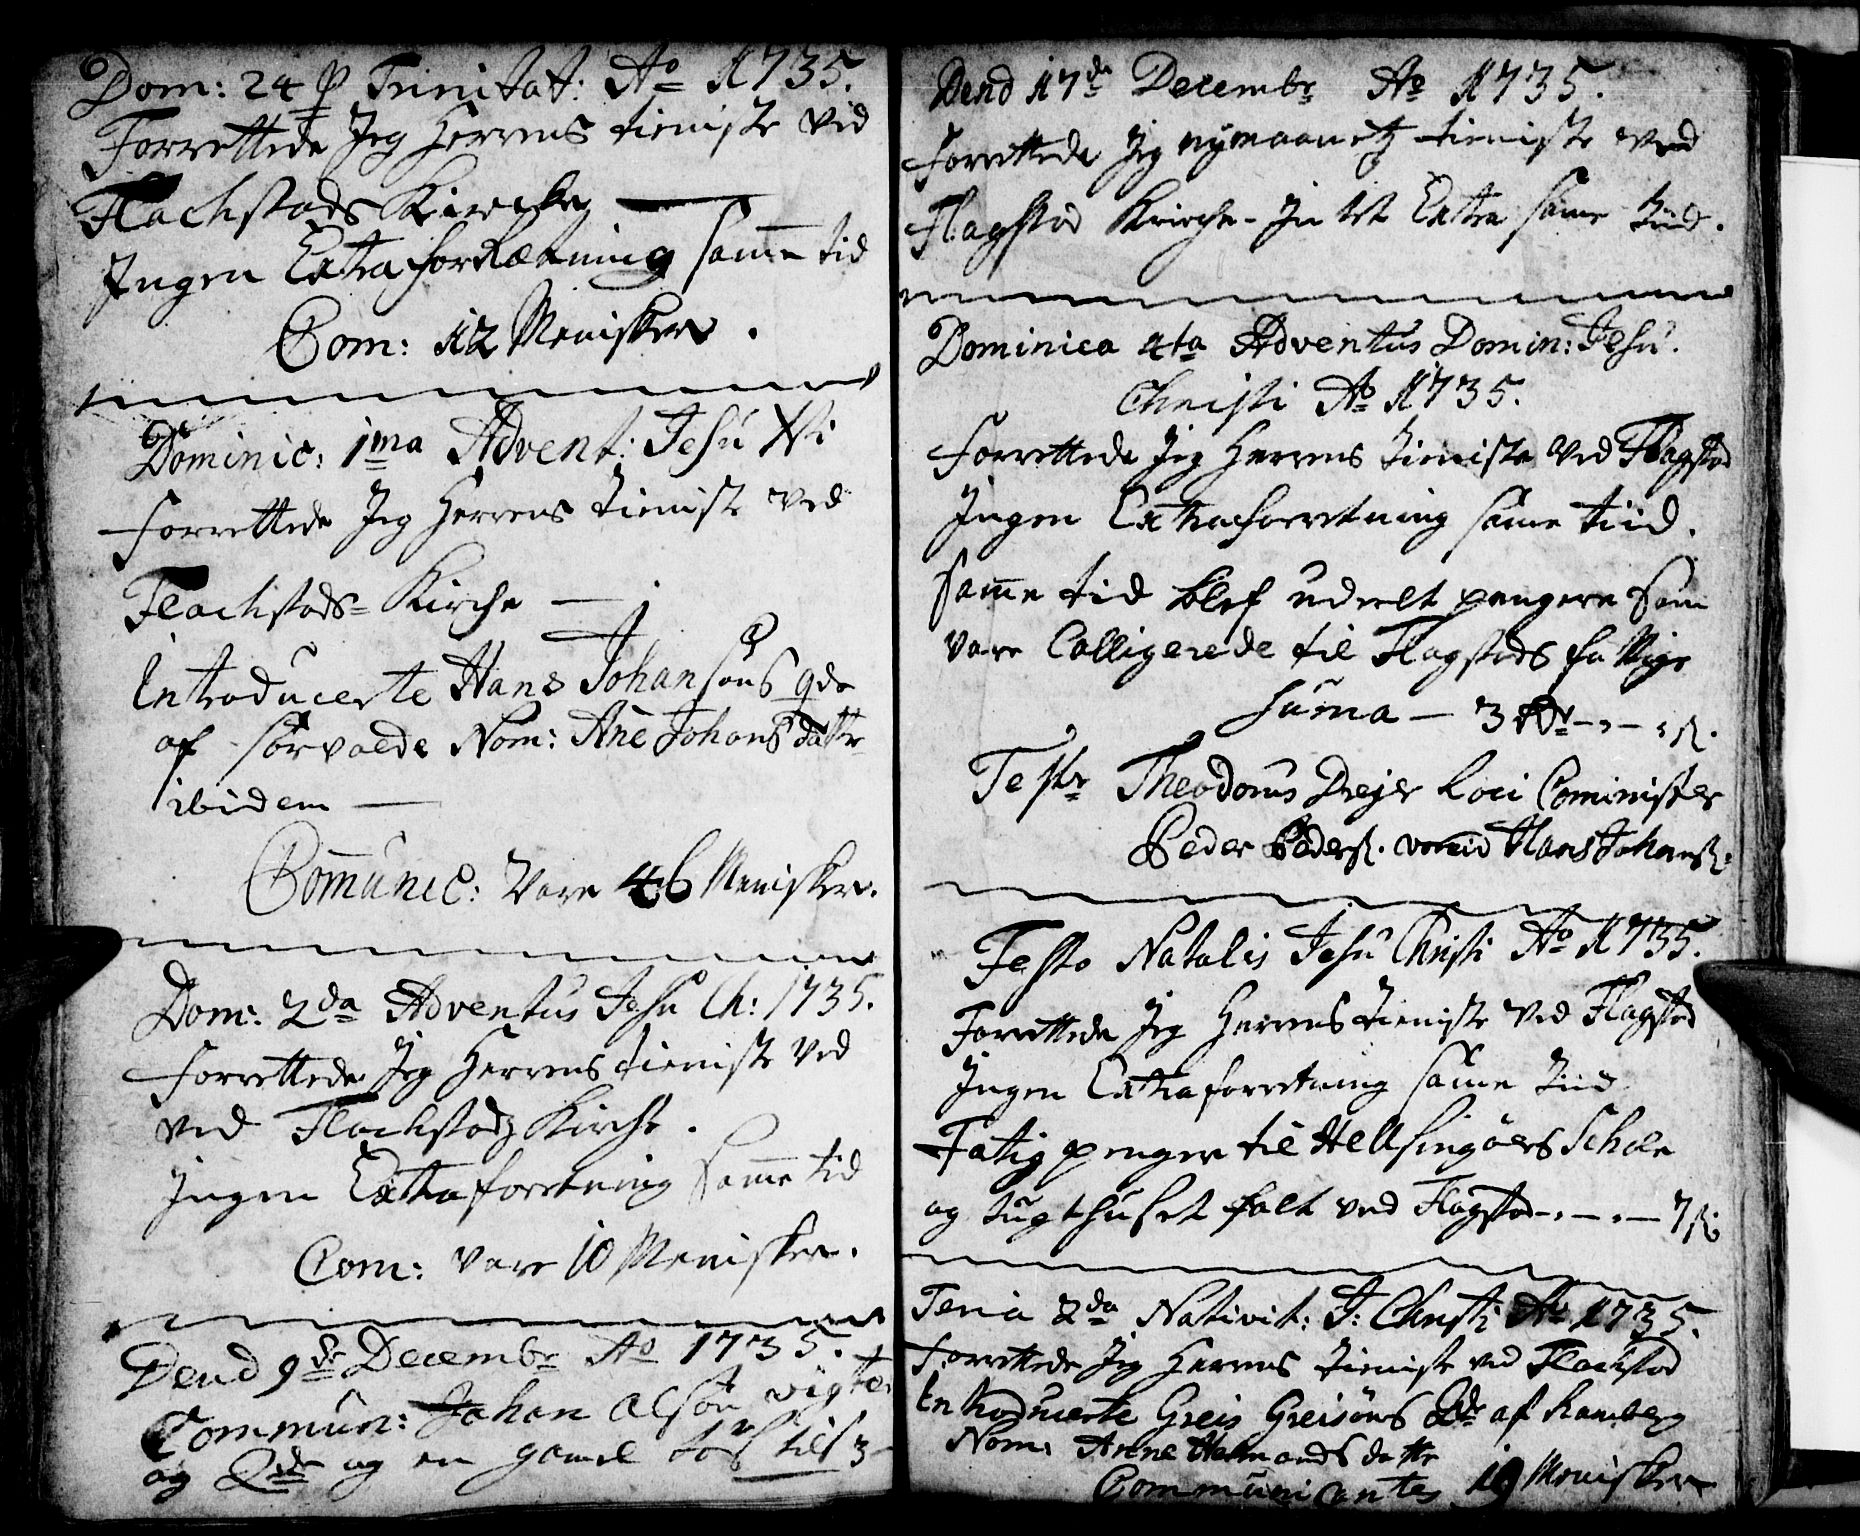 Dom: 24 p Trinitat: Ao 1735.
Forrettede Jeg Herrens tieniste ved
Flachstads Kirche
Ingen Extra forRætning samme tid
Com: 12 Menisker.
Dominic: 1ma Advent: Jesu Xti
Forrettede Jeg Herrens tieniste ved
Flachstads= Kirche —
Introducerte Hans Johansøns qde
af Sørvaade Nom: Ane Johans datter
ibidem —
Comunic: Vare 46 Menisker.
Dom: 2da Adventus Jesu Ch: 1735.
Forrettede Jeg Herrens tieniste ved
ved Flachstadz Kirche.
Ingen Extra forretning samme tid
Com: vare 10 Menisker.
Dend 9de Decembr Ao 1735.
Commun: Johan Olsøn
og Qde og en gamel
Dend 17de Decembr Ao 1735.
Forrettede Jeg nymaanetz tieniste ved
Flagstad Kirche - Intet Extra same tiid.
Dominica 4ta Adventus Domin: Jesu.
Christi Ao 1735.
Forrettede Jeg Herrens tieniste ved Flagstad
Ingen Extraforretning same tiid.
samme tid blef uddelt pengene som
vare Colligerede til Flagstads fattige
Suma — 3
Test Theodorus Dreyer Loci Cominister
Peder Peders. Hans Johans:
Festo Natalis Jesu Christi Ao 1735.
Forrettede Jeg Herrens tieniste ved Flagstad
Ingen Extraforretning same tiid
Fatig penger til Hellsingöers Schole
og tugthuset falt ved Flagstad - . - . - 7 s:
Feria 2da Nativit: J: Christi Ao 1735.
Forrettede Jeg Herrens tieniste ved Flachstad
Introducerte Greis Greisøns Qde af Ramberg
Nom: Anne Hartmands datter
Communicantes 19 Menisker